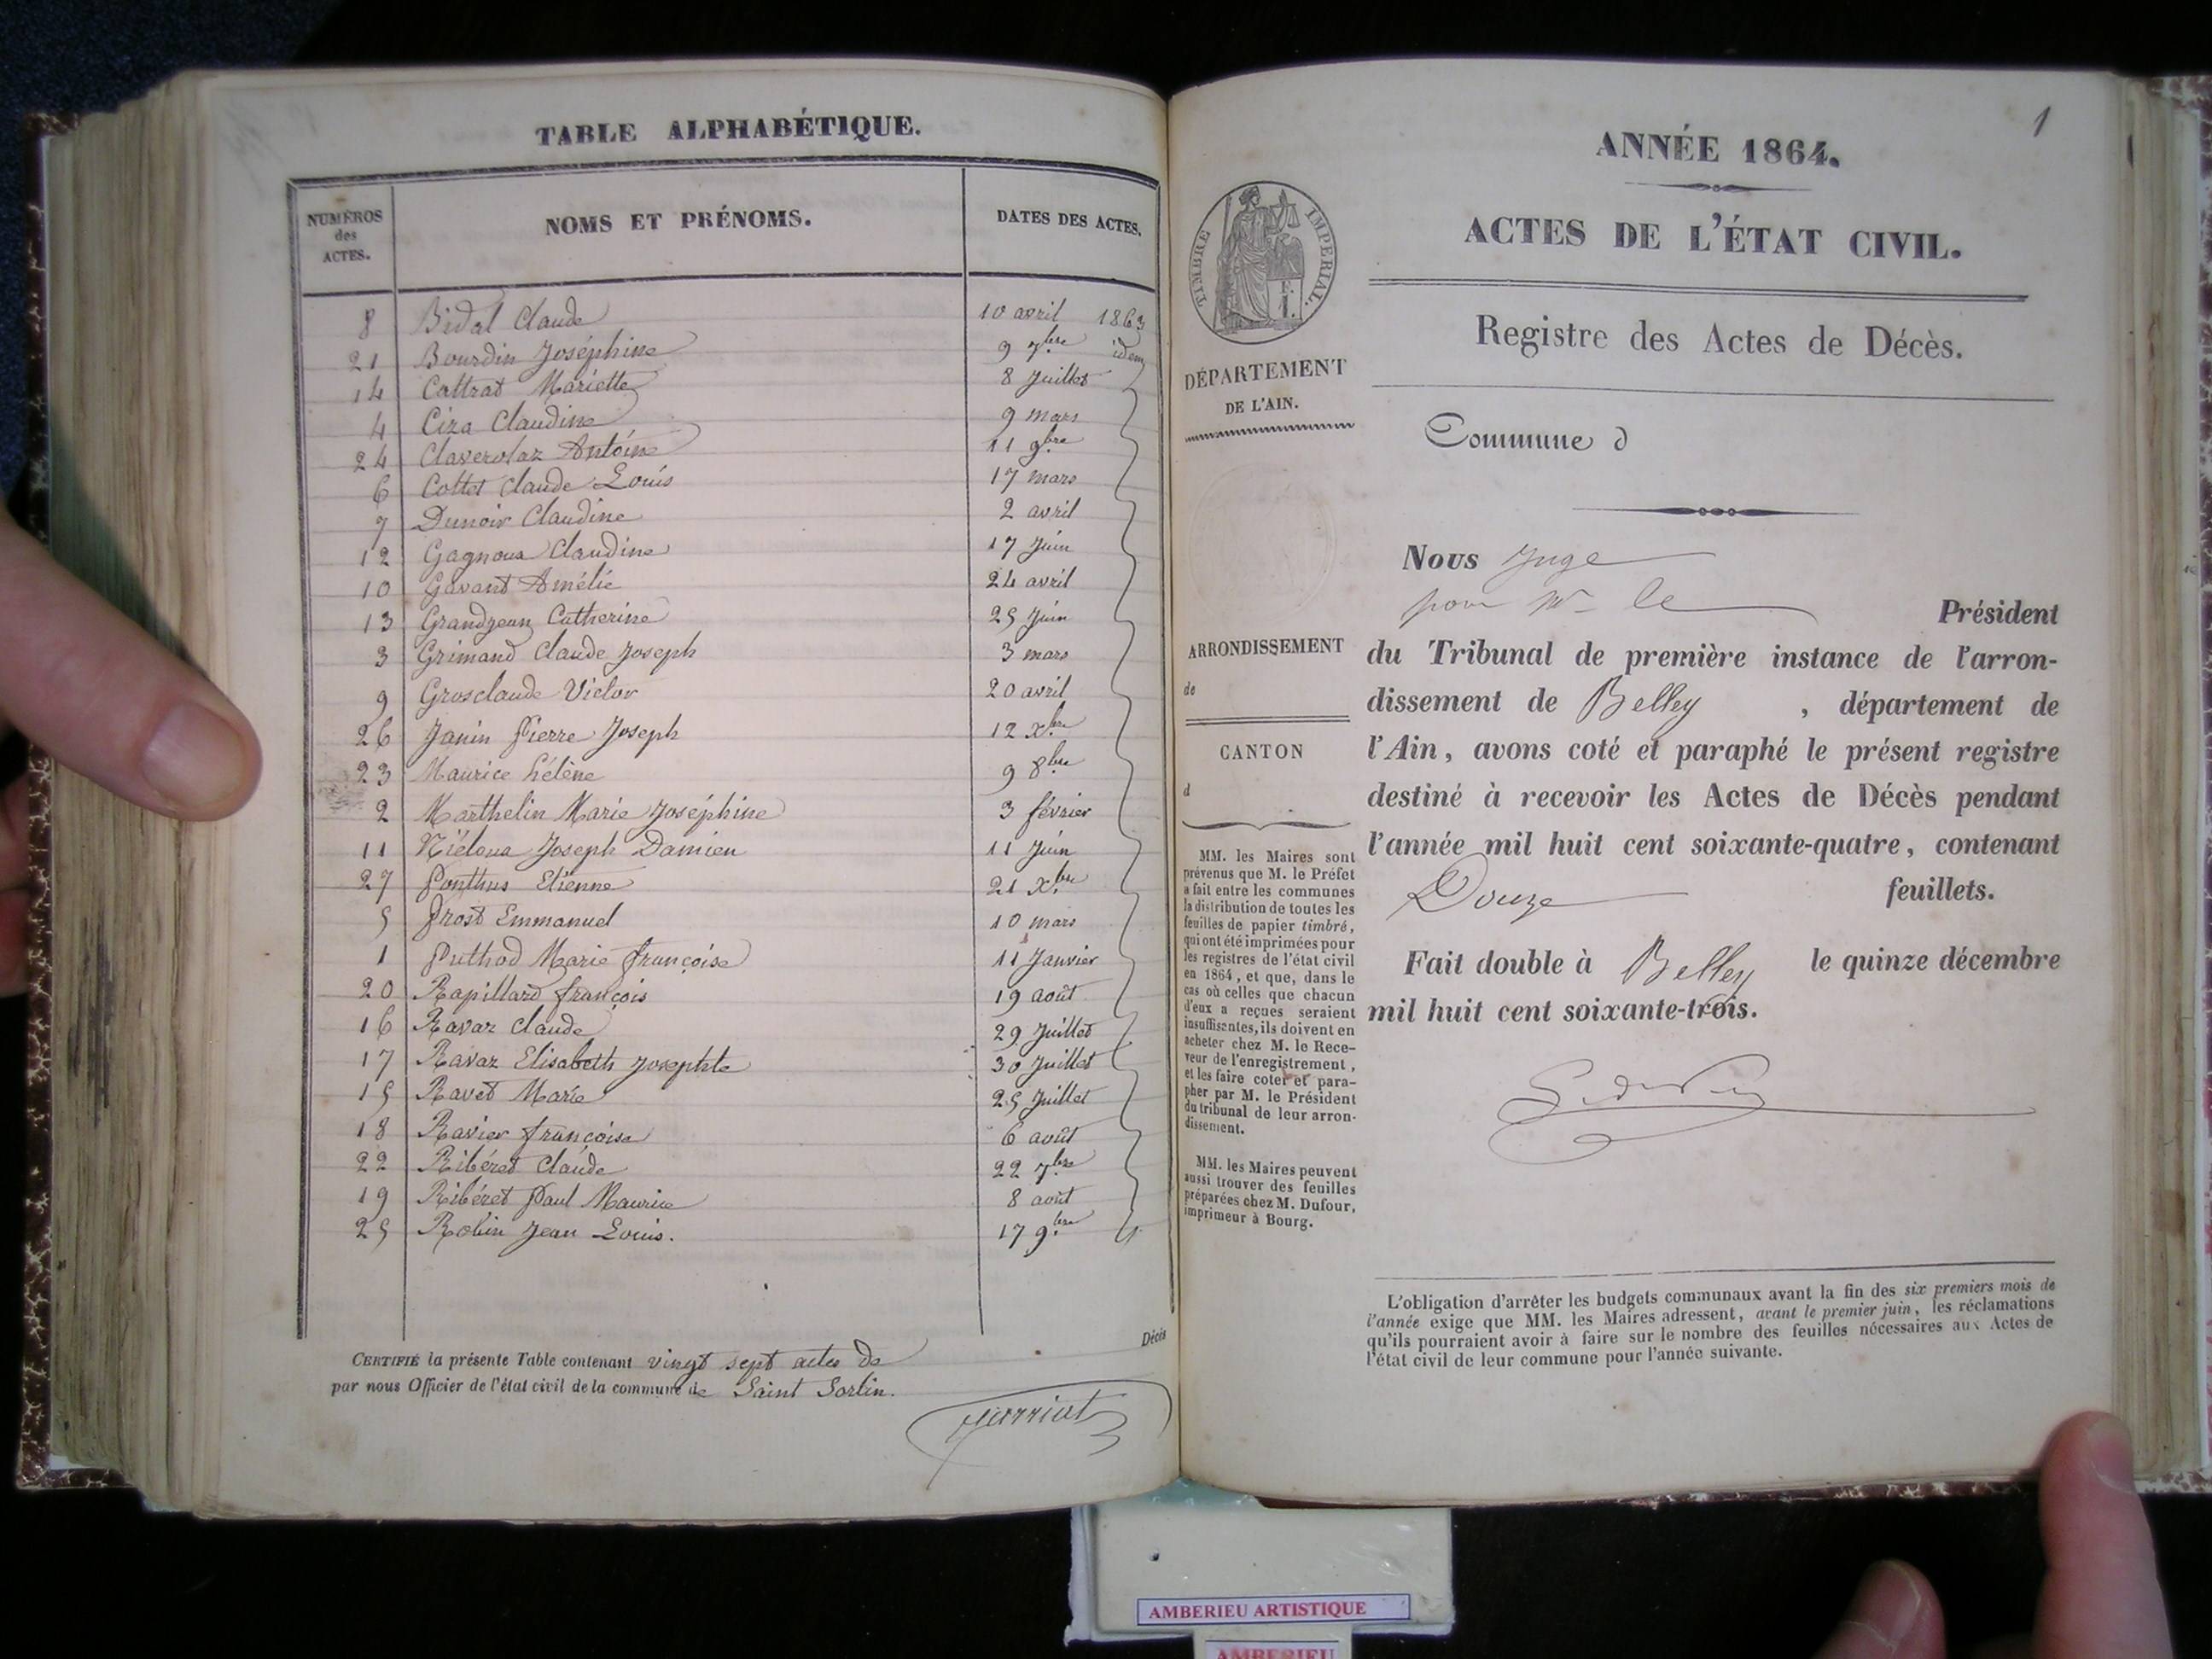 TABLE ALPHABÉTIQUE.
NUMÉROS des ACTES. NOMS ET PRÉNOMS. DATES DES ACTES.
8 Bidal Claude 10 avril 1863
21 Bourdin Joséphine 9 7bre idem
14 Cottrat Mariette 8 Juillet
4 Ciza Claudine 9 mars
24 Claverolaz Antoine 11 9bre
6 Collet Claude Louis 17 mars
7 Dunoir Claudine 2 avril
12 Gagnoux Claudine 17 Juin
10 Gavant Amélie 24 avril
13 Grandjean Catherine 25 Juin
3 Grimand Claude Joseph 3 mars
9 Grosclaude Victor 20 avril
26 Janin Pierre Joseph 12 Xbre
23 Maurice hélène 9 8bre
2 Marthelin Marie Joséphine 3 février
11 Niéloux Joseph Damien 11 Juin
27 Ponthus Etienne 21 Xbre
5 Prost Emmanuel 10 mars
1 Puthod Marie françoise 11 Janvier
20 Rapillard françois 19 août
16 Ravaz Claude 29 Juillet
17 Ravaz Elisabeth Josephte 30 Juillet
15 Ravet Marie 25 Juillet
18 Ravier françoise 6 août
22 Ribéret Claude 22 7bre
19 Ribéret Paul Maurice 8 août
25 Robin Jean Louis. 17 9bre
Décès
CERTIFIÉ la présente Table contenant vingt sept actes de
par nous Officier de l'état civil de la commune de Saint Sorlin.
Jarriat
1
ANNÉE 1864.
ACTES DE L'ÉTAT CIVIL.
Registre des Actes de Décès.
TIMBRE IMPÉRIAL.
F.
1.
DÉPARTEMENT
DE L'AIN.
ARRONDISSEMENT
de
CANTON
d
MM. les Maires sont
prévenus que M. le Préfet
a fait entre les communes
la distribution de toutes les
feuilles de papier timbré,
qui ont été imprimées pour
les registres de l'état civil
en 1864, et que, dans le
cas où celles que chacun
d'eux a reçues seraient
insuffisantes, ils doivent en
acheter chez M. le Rece-
veur de l'enregistrement,
et les faire coter et para-
pher par M. le Président
du tribunal de leur arron-
dissement.
MM. les Maires peuvent
aussi trouver des feuilles
préparées chez M. Dufour,
imprimeur à Bourg.
Commune d
Nous Juge
pour Mr le Président
du Tribunal de première instance de l'arron-
dissement de Belley , département de
l'Ain, avons coté et paraphé le présent registre
destiné à recevoir les Actes de Décès pendant
l'année mil huit cent soixante-quatre, contenant
Douze feuillets.
Fait double à Belley le quinze décembre
mil huit cent soixante-trois.
L'obligation d'arrêter les budgets communaux avant la fin des six premiers mois de
l'année exige que MM. les Maires adressent, avant le premier juin, les réclamations
qu'ils pourraient avoir à faire sur le nombre des feuilles nécessaires aux Actes de
l'état civil de leur commune pour l'année suivante.
AMBERIEU ARTISTIQUE
AMBERIEU